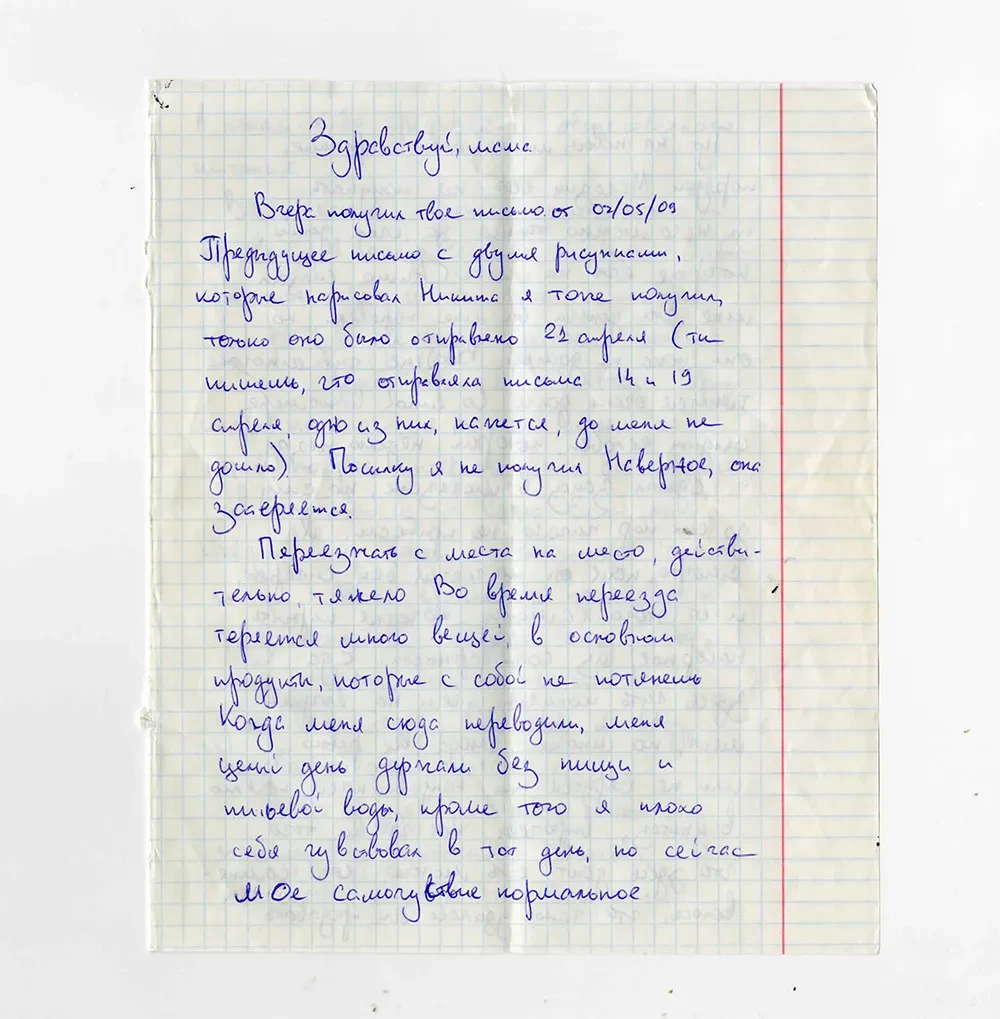 Здравствуй, мама
Вчера получил твое письмо от 07/05/09
Предыдущее письмо с двумя рисунками,
которые нарисовал Никита я тоже получил,
только оно было отправлено 21 апреля (ты
пишешь, что отправляла письма 14 и 19
апреля, одно из них, кажется, до меня не
дошло). Посылку я не получил Наверное, она
затеряется.
Переезжать с места на место, действи-
тельно, тяжело Во время переезда
теряется много вещей, в основном
продукты, которые с собой не потянешь
Когда меня сюда переводили, меня
целый день держали без пищи и
питьевой воды, кроме того я плохо
себя чувствовал в тот день, но сейчас
мое самочувствие нормальное